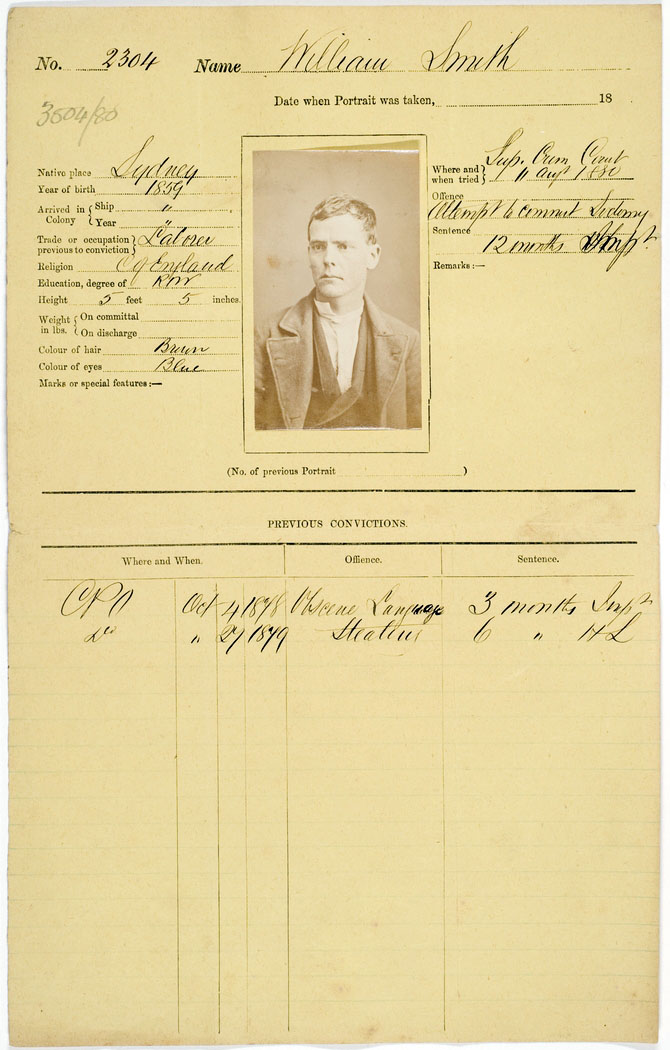 No. 2304 Name William Smith
Date when Portrait was taken, 18
3504/80
Native place Sydney
Year of birth 1859
Arrived in Colony { Ship "
Year "
Trade or occupation previous to conviction } Laborer
Religion C of England
Education, degree of R & W
Height 5 feet 5 inches.
Weight in lbs. { On committal
On discharge
Colour of hair Brown
Colour of eyes Blue
Marks or special features:—
Where and when tried } Sup. Crim Court
11 Augt 1880
Offence
Attempt to commit Sodomy
Sentence
12 months Impt
Remarks:—
(No. of previous Portrait )
PREVIOUS CONVICTIONS.
Where and When. Offence. Sentence.
CPO Oct 4 1878 Obscene Language 3 months Impt
Do " 27 1879 Stealing 6 " HL